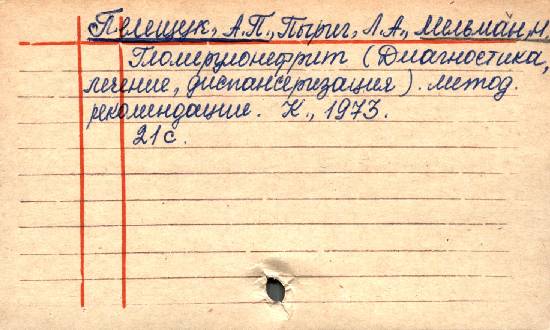 Пелещук, А.П., Пыриг, Л.А., Мельман, Н.
Гломерулонефрит (Диагностика,
лечение, диспансеризация). метод.
рекомендации. К., 1973.
21с.